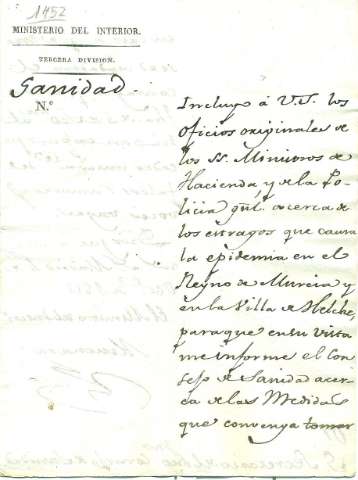 1452
MINISTERIO DEL INTERIOR.
TERCERA DIVISION.
Sanidad.
N.º
Incluyo á V.S. los
oficios originales de
los SS. Ministros de
Hacienda y de la Po-
licia gñl. acerca de
los estragos que causa
la epidemia en el
Reyno de Murcia y
en la Villa de Helche,
para que en su vista
me informe el Con
sejo de Sanidad acer-
ca de las Medidas
que convenga tomar